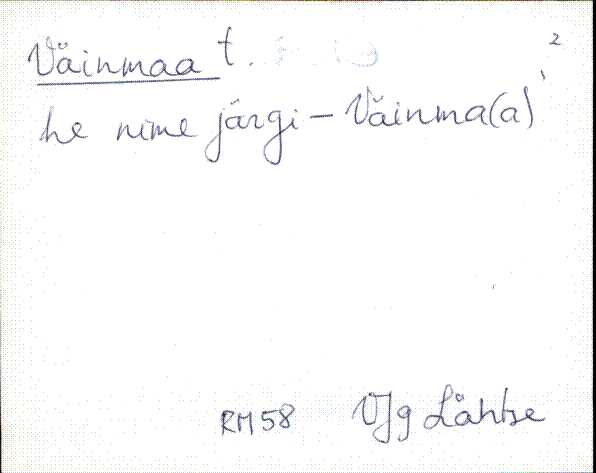 Väinmaa t. 2
he nime järgi – Väinma(a)
RM58 VJg Lähtse